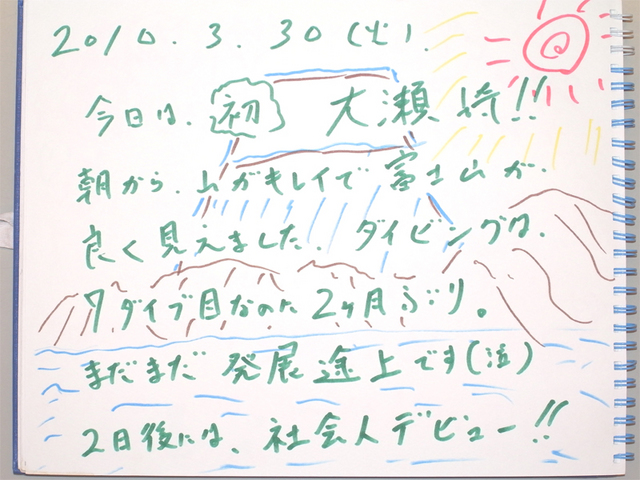 2010.3.30(火).
今日は、初 大瀬崎!!
朝から、山がキレイで富士山が、
良く見えました。ダイビングは、
7ダイブ目なのに2ヶ月ぶり。
まだまだ発展途上です(泣)
2日後には、社会人デビュー!!